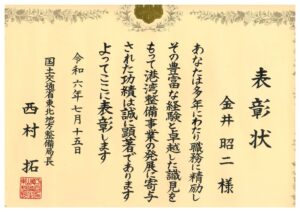 表彰状
金井昭二様
あなたは多年にわたり職務に精励し
その豊富な経験と卓越した識見を
もって港湾整備事業の発展に寄与
された功績は誠に顕著であります
よってここに表彰します
令和六年七月十五日
国土交通省東北地方整備局長
西村拓